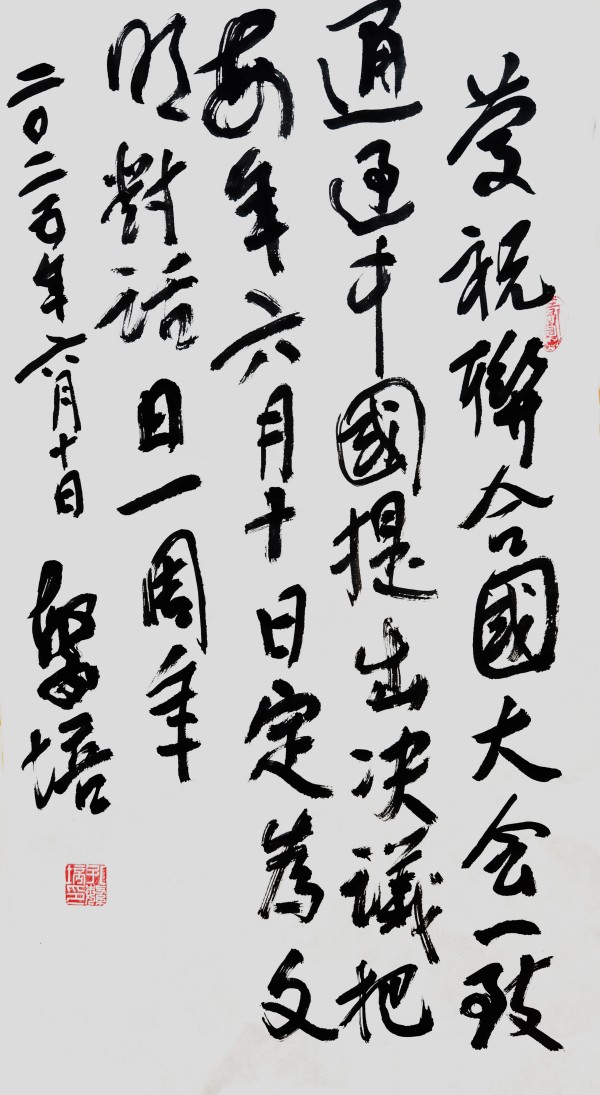 慶祝聯合國大会一致
通過中國提出决議把
每年六月十日定為文
明對話日一周年
二〇二五年六月十日
培